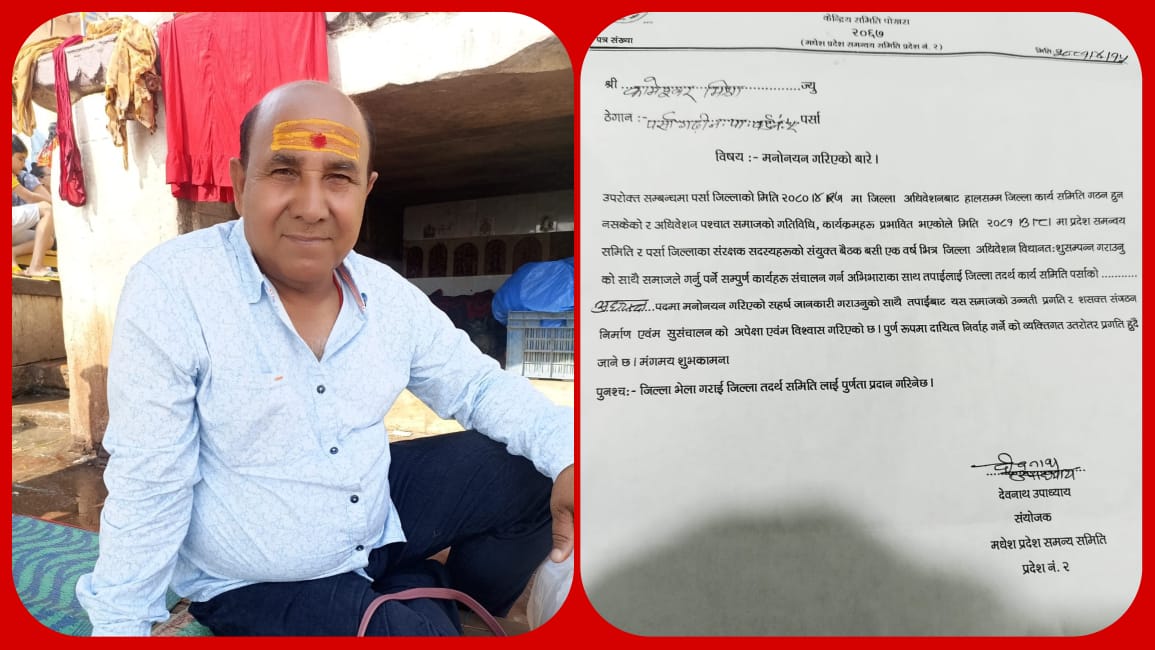 केन्द्रिय समिति पोखरा
२०६७
(मधेश प्रदेश समन्वय समिति प्रदेश नं. २)
पत्र संख्या
मिति २०८१/४/१५
श्री कामेश्वर मिश्रा ज्यु
ठेगान :- पर्सागढी न.पा. वडा नं. ५ पर्सा
विषय :- मनोनयन गरिएको बारे ।
उपरोक्त सम्बन्धमा पर्सा जिल्लाको मिति २०८० मा जिल्ला अधिवेशनबाट हालसम्म जिल्ला कार्य समिति गठन हुन
नसकेको र अधिवेशन पश्चात समाजको गतिविधि, कार्यक्रमहरू प्रभावित भएकोले मिति २०८१ मा प्रदेश समन्वय
समिति र पर्सा जिल्लाका संरक्षक सदस्यहरूको संयुक्त बैठक बसी एक वर्ष भित्र जिल्ला अधिवेशन विधानत:शुसम्पन्न गराउनु
को साथै समाजले गर्नु पर्ने सम्पुर्ण कार्यहरु संचालन गर्न अभिभाराका साथ तपाईलाई जिल्ला तदर्थ कार्य समिति पर्साको ...........
अध्यक्ष पदमा मनोनयन गरिएको सहर्ष जानकारी गराउनुको साथै तपाईबाट यस समाजको उन्नती प्रगति र शसक्त संगठन
निर्माण एवंम सुसंचालन को अपेक्षा एवंम विश्वास गरिएको छ । पुर्ण रूपमा दायित्व निर्वाह गर्ने को व्यक्तिगत उतरोतर प्रगति हुँदै
जाने छ । मंगमय शुभकामना
पुनश्च:- जिल्ला भेला गराई जिल्ला तदर्थ समिति लाई पुर्णता प्रदान गरिनेछ ।
देवनाथ उपाध्याय
संयोजक
मधेश प्रदेश समन्य समिति
प्रदेश नं. २